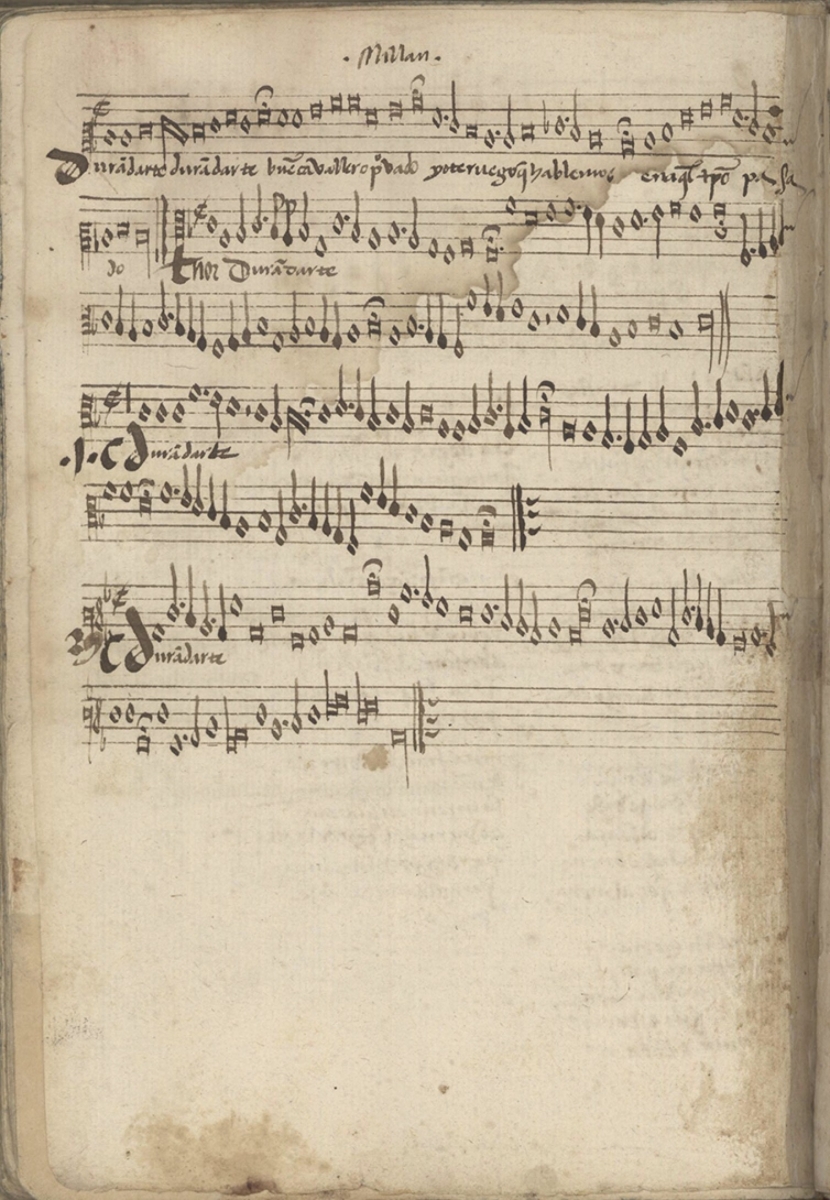 · Millan ·
Durādarte durādarte buē cavallero yo te ruego q̄ hablemos en aq̄l tp̄o pasa
do thor Durādarte
Durādarte
Durādarte